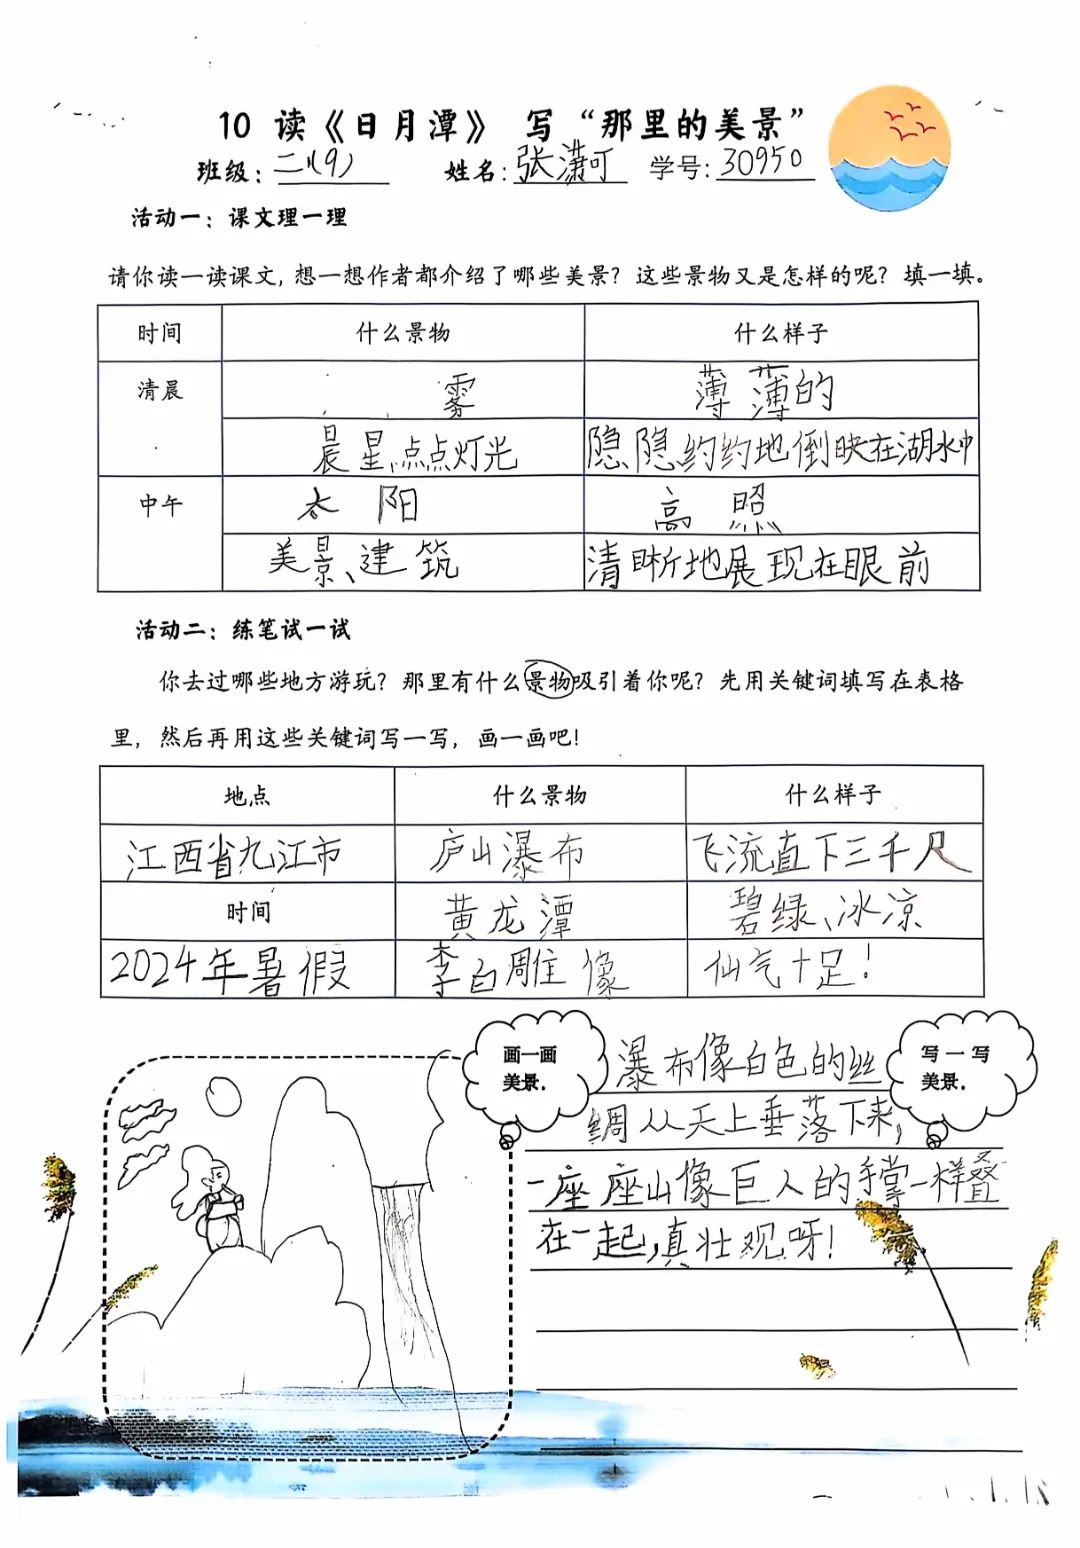 10 读《日月潭》 写“那里的美景”
班级：二(9) 姓名：张潇可 学号：30950
活动一：课文理一理
请你读一读课文，想一想作者都介绍了哪些美景？这些景物又是怎样的呢？填一填。
时间 什么景物 什么样子
清晨 雾 薄薄的
晨星、点点灯光 隐隐约约地倒映在湖水中
中午 太阳 高照
美景、建筑 清晰地展现在眼前
活动二：练笔试一试
你去过哪些地方游玩？那里有什么景物吸引着你呢？先用关键词填写在表格
里，然后再用这些关键词写一写，画一画吧！
地点 什么景物 什么样子
江西省九江市 庐山瀑布 飞流直下三千尺
时间 黄龙潭 碧绿、冰凉
2024年暑假 李白雕像 仙气十足！
画一画
美景.
写一写
美景.
瀑布像白色的丝
绸从天上垂落下来，
一座座山像巨人的手掌一样叠
在一起，真壮观呀！